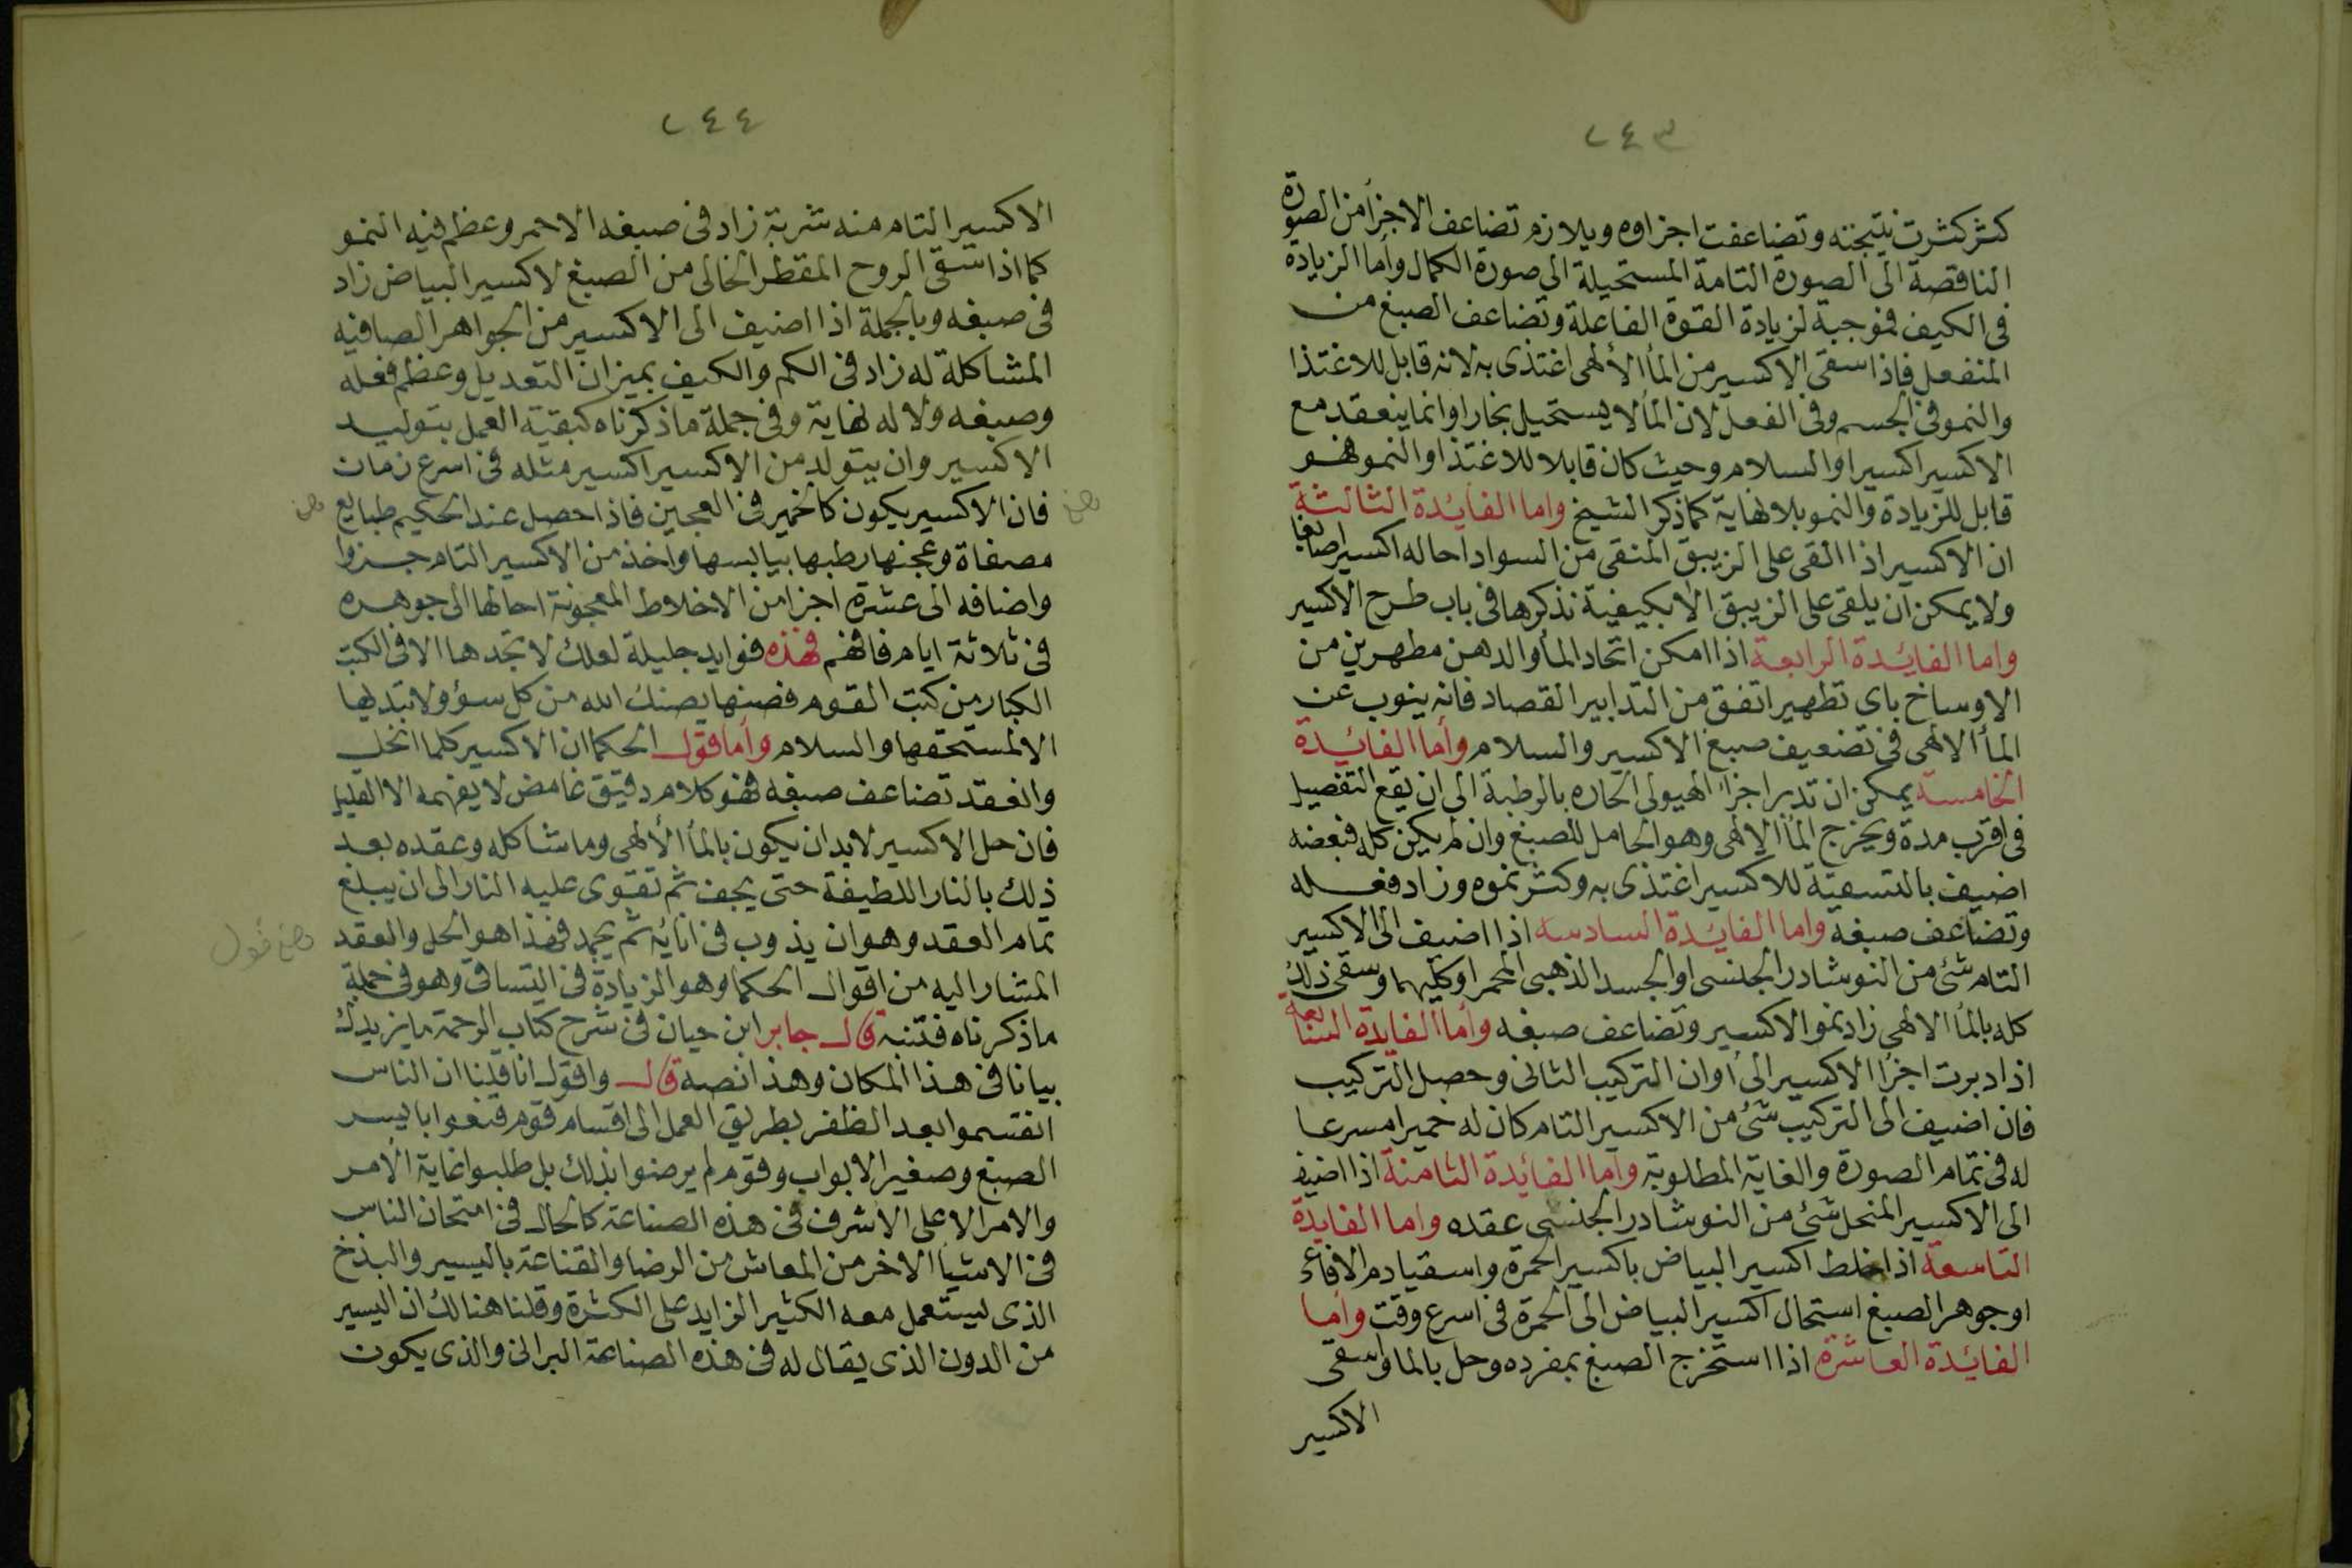 ٢٤٣
كثر كثرت نتيجته وتضاعفت اجزاوه ويلازم تضاعف الاجزأ من الصورة
الناقصة الى الصورة التامة المستحيلة الى صورة الكمال وأما الزيادة
فى الكيف فموجبة لزيادة القوة الفاعلة وتضاعف الصبغ من
المنفعل فاذا سقى الاكسير من المأ الألهى اغتذى به لانه قابل للاغتذا
والنمو فى الجسم وفى الفعل لان المأ لا يستحيل بخارا وانما ينعقد مع
الاكسير اكسيرا والسلام وحيث كان قابلا للاغتذا والنمو فهو
قابل للزيادة والنمو بلا نهاية كما ذكر الشيخ واما الفائدة الثالثة
ان الاكسير اذا القى على الزيبق المنقى من السواد احاله اكسيرا صابغا
ولا يمكن ان يلقى على الزيبق الا بكيفية نذكرها فى باب طرح الاكسير
واما الفائدة الرابعة اذا امكن اتحاد المأ والدهن مطهرين من
الاوساخ باى تطهير اتفق من التدابير القصاد فانه ينوب عن
المأ الالهى فى تضعيف صبغ الاكسير والسلام وأما الفائدة
الخامسة يمكن ان تدبر اجزأ الهيولى الحاره بالرطبة الى ان يقع التفصيل
فى اقرب مدة ويخرج المأ الالهى وهو الحامل للصبغ وان لم يكن كله فبعضه
اضيف بالتسقية للاكسير اغتذى به وكثر نموه وزاد فعله
وتضاعف صبغه واما الفائدة السادسة اذا اضيف الى الاكسير
التام شئ من النوشادر الجنسى او الجسد الذهبى المحمر او كليهما وسقى ذلك
كله بالمأ الالهى زاد نمو الاكسير وتضاعف صبغه وأما الفايدة السابعة
اذا دبرت اجزا الاكسير الى أوان التركيب الثانى وحصل التركيب
فان اضيف الى التركيب شئ من الاكسير التام كان له خميرا مسرعا
له فى تمام الصورة والغاية المطلوبة واما الفائدة الثامنة اذا اضيف
الى الاكسير المنحل شئ من النوشادر الجنسى عقده واما الفايدة
التاسعة اذا خلط اكسير البياض باكسير الحمرة واسقيا دم الافاعى
او جوهر الصبغ استحال اكسير البياض الى الحمرة فى اسرع وقت وأما
الفائدة العاشرة اذا استخرج الصبغ بمفرده وحل بالما واسقى
الاكسير
٢٤٤
الاكسير التام منه شربة زاد فى صبغه الاحمر وعظم فيه النمو
كما اذا سقى الروح المقطر الخالى من الصبغ لاكسير البياض زاد
فى صبغه وبالجملة اذا اضيف الى الاكسير من الجواهر الصافيه
المشاكلة له زاد فى الكم والكيف بميزان التعديل وعظم فعله
وصبغه ولا له نهاية وفى جملة ما ذكرناه كبقية العمل بتوليد
الاكسير وان يتولد من الاكسير اكسير مثله فى اسرع زمان
فان الاكسير يكون كالخمير فى العجين فاذا حصل عند الحكيم طبايع
مصفاة وعجنها رطبها بيابسها واخذ من الاكسير التام جزوا
واضافه الى عشرة اجزا من الاخلاط المعجونة احالها الى جوهره
فى ثلاثة ايام فافهم فهذه فوايد جليلة لعلك لا تجدها الا فى الكتب
الكبار من كتب القوم فصنها يصنك الله من كل سؤ ولا تبديها
الا لمستحقها والسلام وأما قول الحكما ان الاكسير كلما انحل
وانعقد تضاعف صبغه فهو كلام دقيق غامض لا يفهمه الا القليل
فان حل الاكسير لابد ان يكون بالمأ الألهى وما شاكله وعقده بعد
ذلك بالنار اللطيفة حتى يجف ثم تقوى عليه النار الى ان يبلغ
تمام العقد وهو ان يذوب فى انائه ثم يجمد فهذا هو الحل والعقد
المشار اليه من اقوال الحكما وهو الزيادة فى التساقى وهو فى جملة
ما ذكرناه فتنبه قال جابر ابن حيان فى شرح كتاب الرحمة ما يزيدك
بيانا فى هذا المكان وهذا نصه قال واقول انا قلنا ان الناس
انقسموا بعد الظفر بطريق العمل الى اقسام قوم قنعوا بايسر
الصبغ وصغير الابواب وقوم لم يرضوا بذلك بل طلبوا غاية الأمر
والامر الاعلى الاشرف فى هذه الصناعة كالحال فى امتحان الناس
فى الاشيأ الاخر من المعاش من الرضا والقناعة باليسير والبذخ
الذى يستعمل معه الكثير الزايد على الكثرة وقلنا هنالك ان اليسير
من الدون الذى يقال له فى هذه الصناعة البرانى والذى يكون